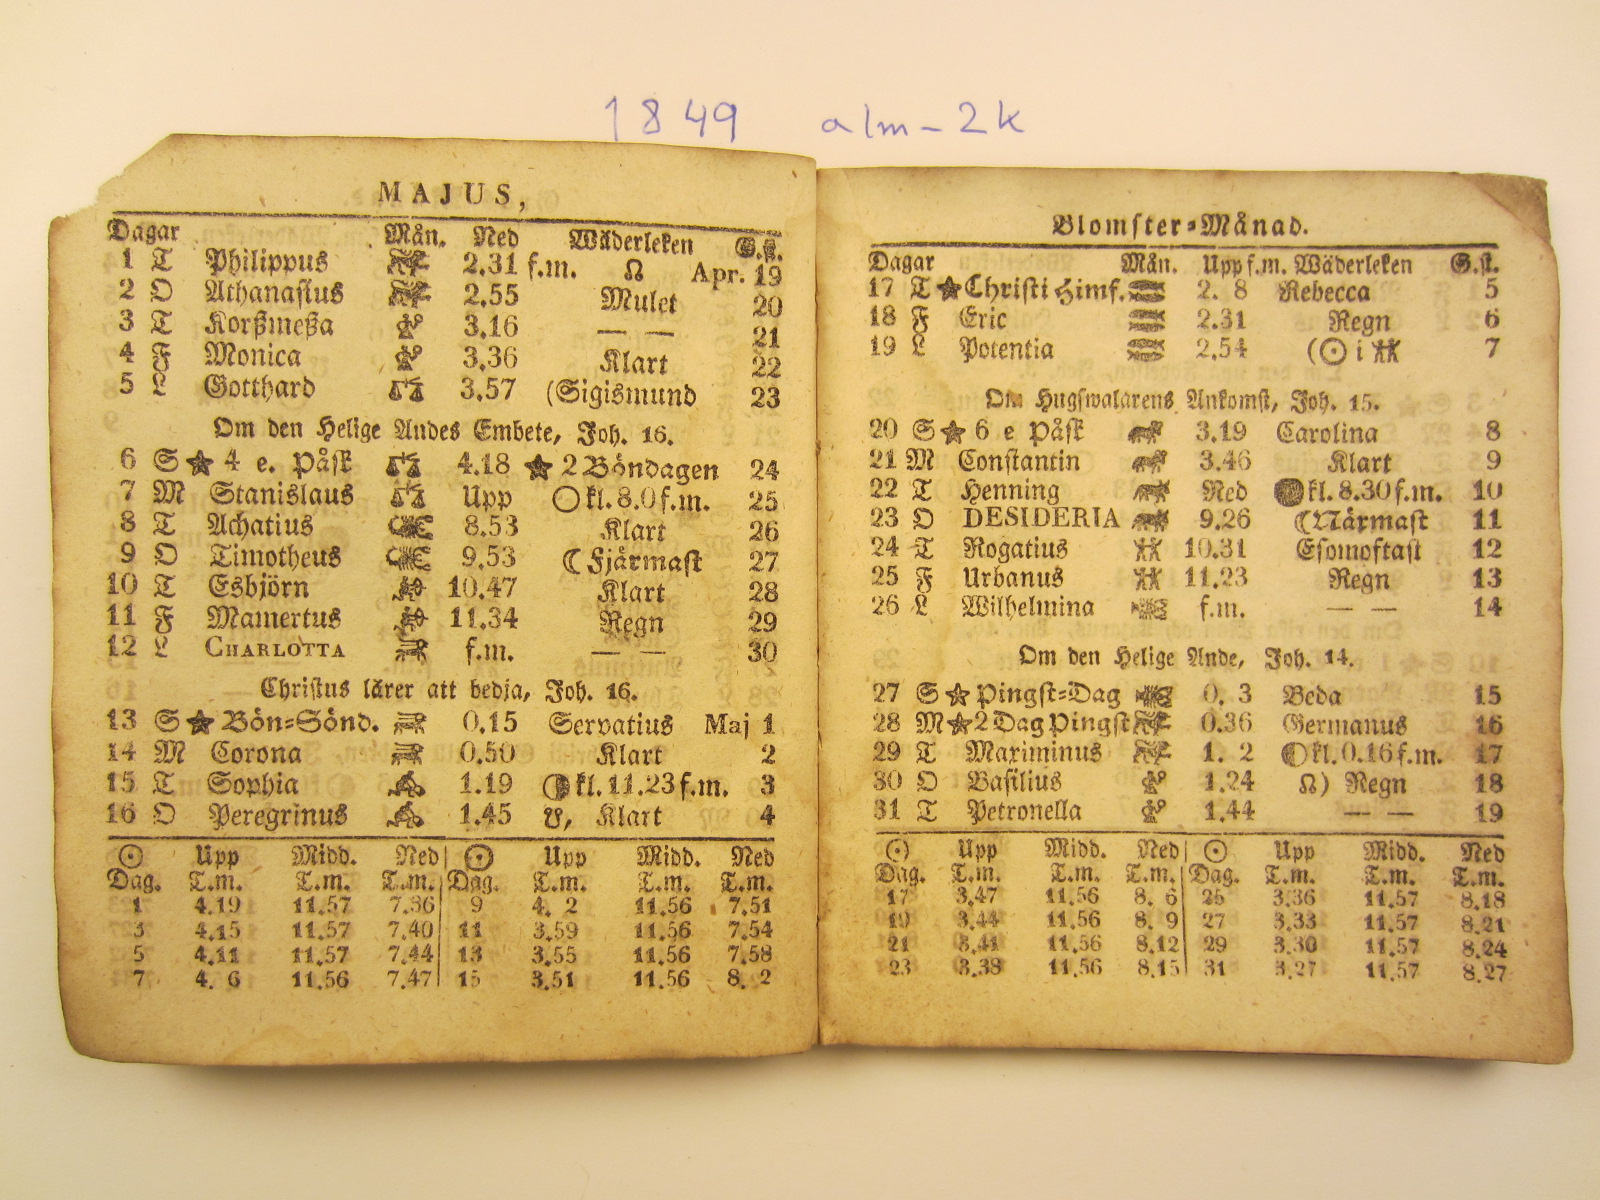 1849 alm-2k
MAJUS,
Dagar Mån. Ned Wäderleken G.st.
1 T Philippus 2.31 f.m. ☊ Apr. 19
2 O Athanasius 2.55 Mulet 20
3 T Korßmeßa 3.16 — — 21
4 F Monica 3.36 Klart 22
5 L Gotthard 3.57 (Sigismund 23
Om den Helige Andes Embete, Joh. 16.
6 S ★ 4 e. Påsk 4.18 ★ 2 Böndagen 24
7 M Stanislaus Upp ○ kl. 8.0 f.m. 25
8 T Achatius 8.53 Klart 26
9 O Timotheus 9.53 ☾ Fjärmast 27
10 T Esbjörn 10.47 Klart 28
11 F Mamertus 11.34 Regn 29
12 L CHARLOTTA f.m. — — 30
Christus lärer att bedja, Joh. 16.
13 S ★ Bön-Sönd. 0.15 Servatius Maj 1
14 M Corona 0.50 Klart 2
15 T Sophia 1.19 ◑ kl. 11.23 f.m. 3
16 O Peregrinus 1.45 ☋, Klart 4
☉ Upp Midd. Ned ☉ Upp Midd. Ned
Dag. T.m. T.m. T.m. Dag. T.m. T.m. T.m.
1 4.19 11.57 7.36 9 4. 2 11.56 7.51
3 4.15 11.57 7.40 11 3.59 11.56 7.54
5 4.11 11.57 7.44 13 3.55 11.56 7.58
7 4. 6 11.56 7.47 15 3.51 11.56 8. 2
Blomster-Månad.
Dagar Mån. Upp f.m. Wäderleken G.st.
17 T ★ Christi Himf. 2. 8 Rebecca 5
18 F Eric 2.31 Regn 6
19 L Potentia 2.54 (☉ i ♊ 7
Om Hugswalarens Ankomst, Joh. 15.
20 S ★ 6 e Påsk 3.19 Carolina 8
21 M Constantin 3.46 Klart 9
22 T Henning Ned ● kl. 8.30 f.m. 10
23 O DESIDERIA 9.26 ☾ Närmast 11
24 T Rogatius 10.31 Esomoftast 12
25 F Urbanus 11.23 Regn 13
26 L Wilhelmina f.m. — — 14
Om den Helige Ande, Joh. 14.
27 S ★ Pingst-Dag 0. 3 Beda 15
28 M ★ 2 Dag Pingst 0.36 Germanus 16
29 T Maximinus 1. 2 ◐ kl. 0.16 f.m. 17
30 O Basilius 1.24 ☊) Regn 18
31 T Petronella 1.44 — — 19
☉ Upp Midd. Ned ☉ Upp Midd. Ned
Dag. T.m. T.m. T.m. Dag. T.m. T.m. T.m.
17 3.47 11.56 8. 6 25 3.36 11.57 8.18
19 3.44 11.56 8. 9 27 3.33 11.57 8.21
21 3.41 11.56 8.12 29 3.30 11.57 8.24
23 3.38 11.56 8.15 31 3.27 11.57 8.27